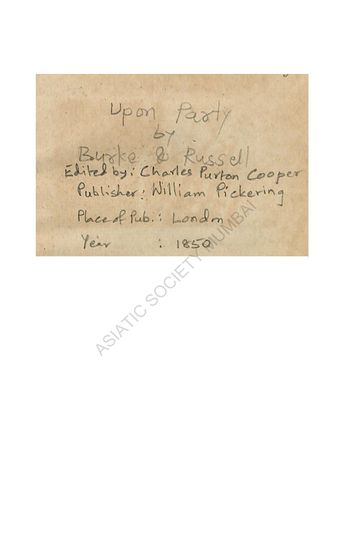 Upon Party
by
Burke & Russell
Edited by: Charles Purton Cooper
Publisher: William Pickering
Place of Pub.: London
Year : 1850
ASIATIC SOCIETY MUMBAI